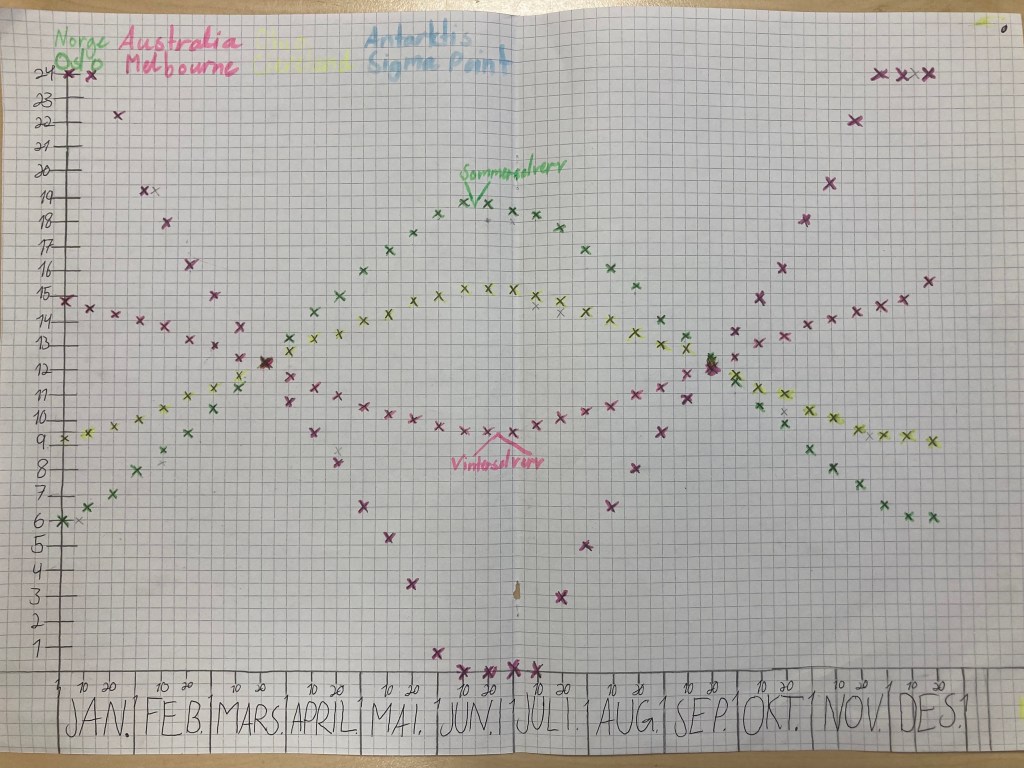 Norge Australia Antarktis
Oslo Melbourne Sigma Point
24
23
22
21
20
19
18
17
16
15
14
13
12
11
10
9
8
7
6
5
4
3
2
1
Sommersolverv
Vintersolverv
1 10 20 10 20 10 20 10 20 10 20 10 20 10 20 10 20 10 20 10 20 10 20 10 20
JAN. FEB. MARS. APRIL MAI. JUN. JULI. AUG. SEP. OKT. NOV. DES.